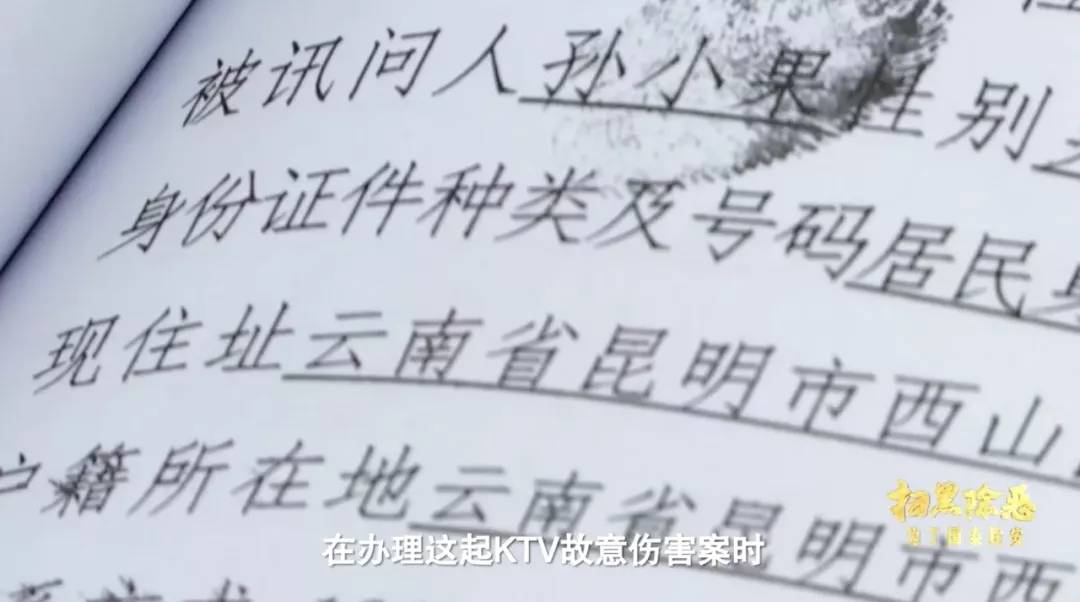 被讯问人孙小果性别
身份证件种类及号码居民
现住址云南省昆明市西山
户籍所在地云南省昆明市西
扫黑除恶
为了国泰民安
在办理这起KTV故意伤害案时